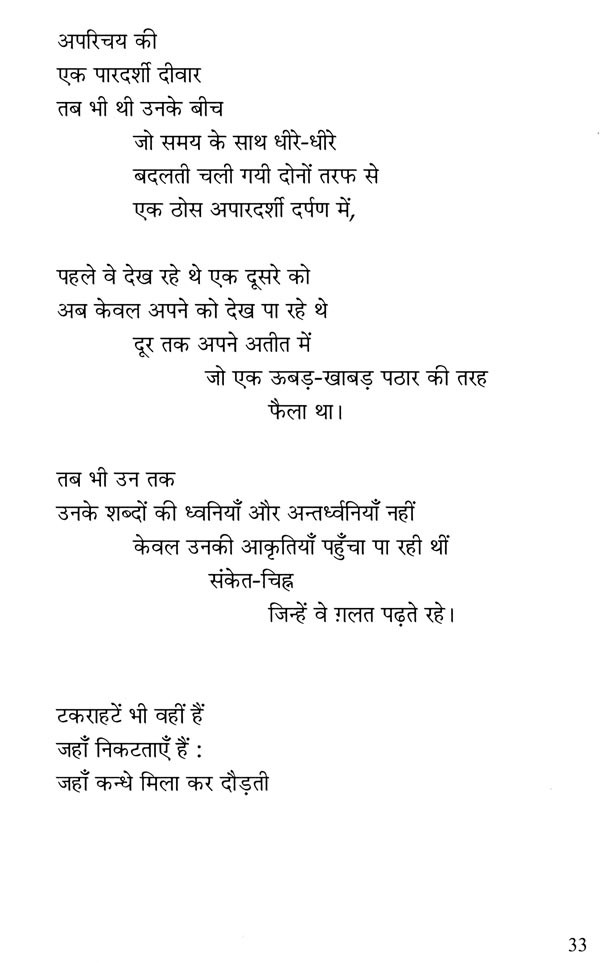 अपरिचय की
एक पारदर्शी दीवार
तब भी थी उनके बीच
जो समय के साथ धीरे-धीरे
बदलती चली गयी दोनों तरफ से
एक ठोस अपारदर्शी दर्पण में,
पहले वे देख रहे थे एक दूसरे को
अब केवल अपने को देख पा रहे थे
दूर तक अपने अतीत में
जो एक ऊबड़-खाबड़ पठार की तरह
फैला था।
तब भी उन तक
उनके शब्दों की ध्वनियाँ और अन्तर्ध्वनियाँ नहीं
केवल उनकी आकृतियाँ पहुँचा पा रही थीं
संकेत-चिह्न
जिन्हें वे ग़लत पढ़ते रहे।
टकराहटें भी वहीं हैं
जहाँ निकटताएँ हैं :
जहाँ कन्धे मिला कर दौड़ती
33